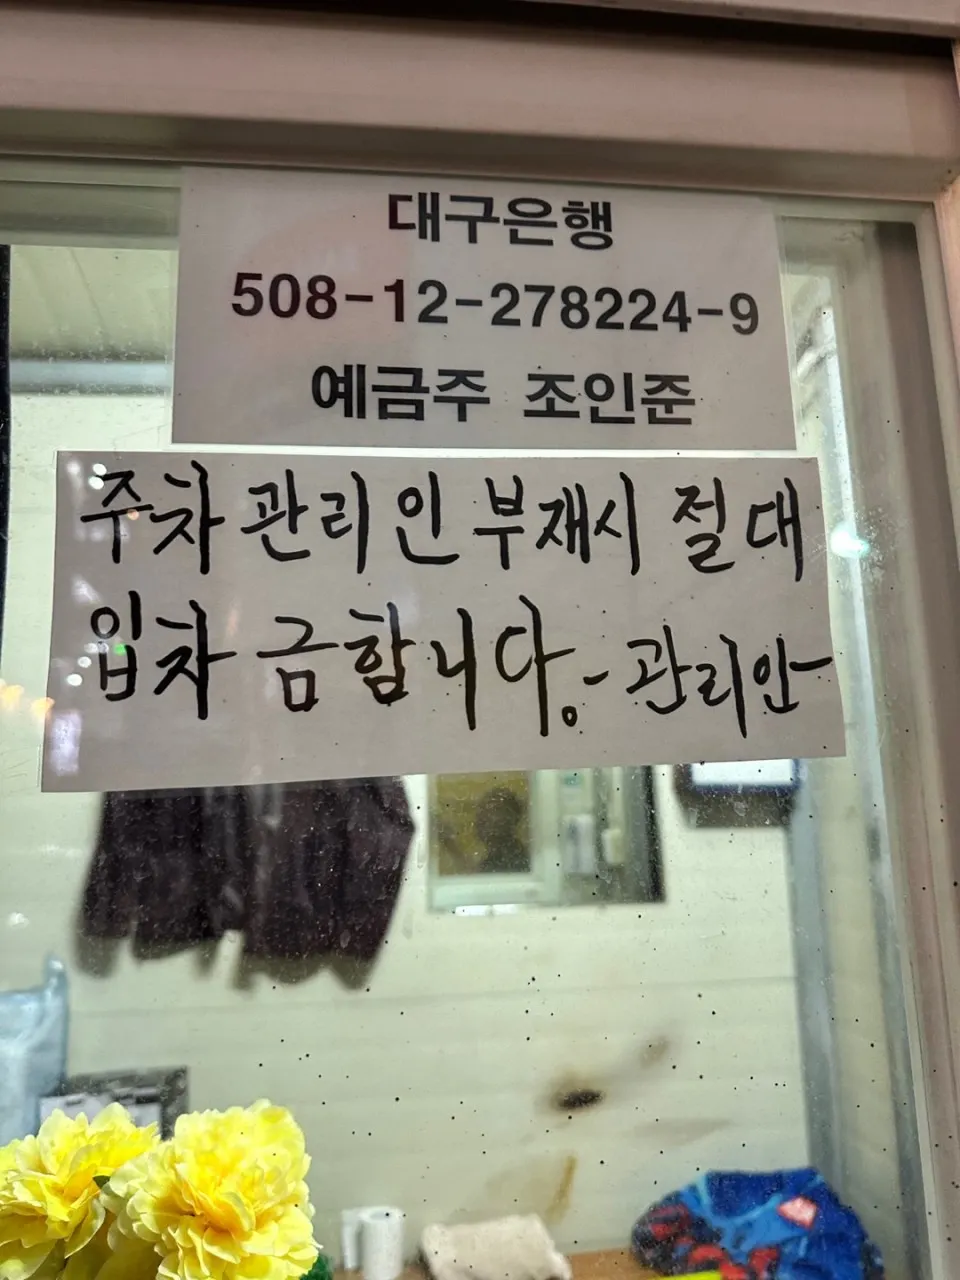 대구은행
508-12-278224-9
예금주 조인준
주차 관리인 부재시 절대
입차 금합니다. - 관리인-